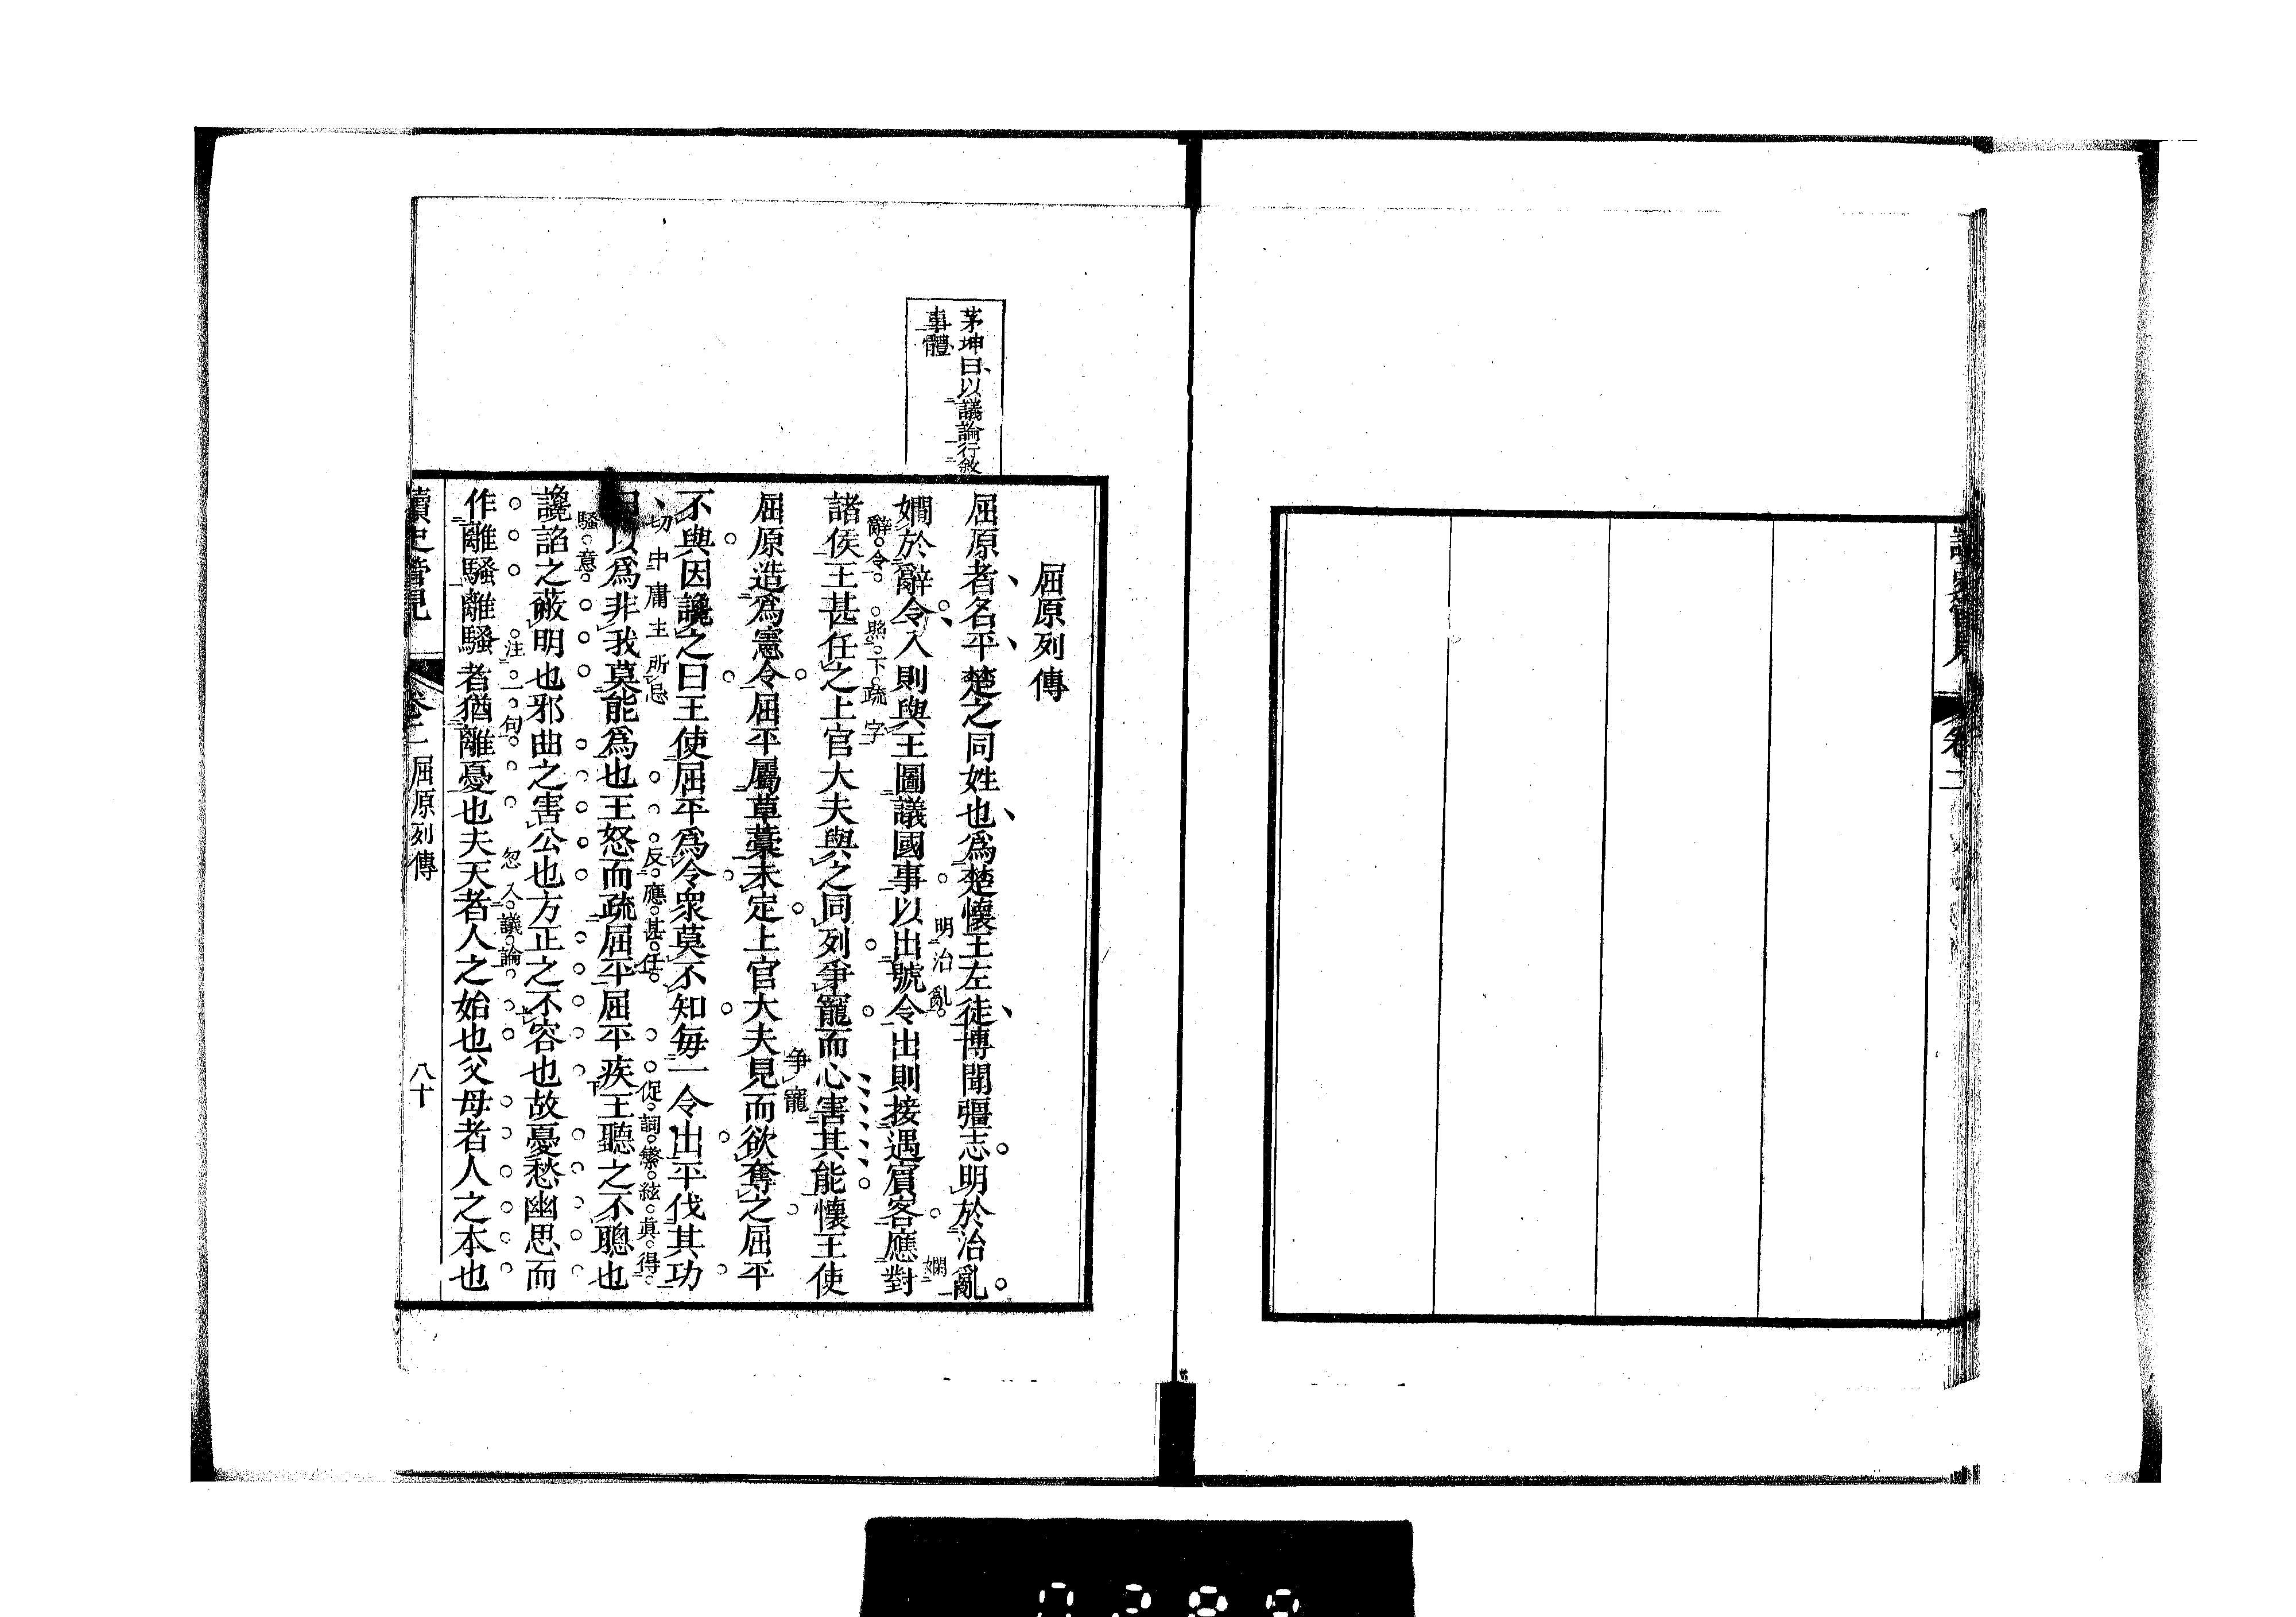 卷二
茅坤曰以議論行敘
事體
屈原列傳
屈原者名平楚之同姓也爲楚懷王左徒博聞彊志明於治亂
明治亂 嫻
嫺於辭令入則與王圖議國事以出號令出則接遇賓客應對
辭令 下疏字
諸侯王甚任之上官大夫與之同列爭寵而心害其能懷王使
争寵
屈原造爲憲令屈平屬草藁未定上官大夫見而欲奪之屈平
不與因讒之曰王使屈平爲令衆莫不知毎一令出平伐其功
切中庸主所忌 反應甚任 促詞繁絃真得
以爲非我莫能爲也王怒而疏屈平屈平疾王聽之不聰也
騷意
讒諂之蔽明也邪曲之害公也方正之不容也故憂愁幽思而
注一句 忽入議論
作離騷離騷者猶離憂也夫天者人之始也父母者人之本也
讀史管見 卷二 屈原列傳 八十